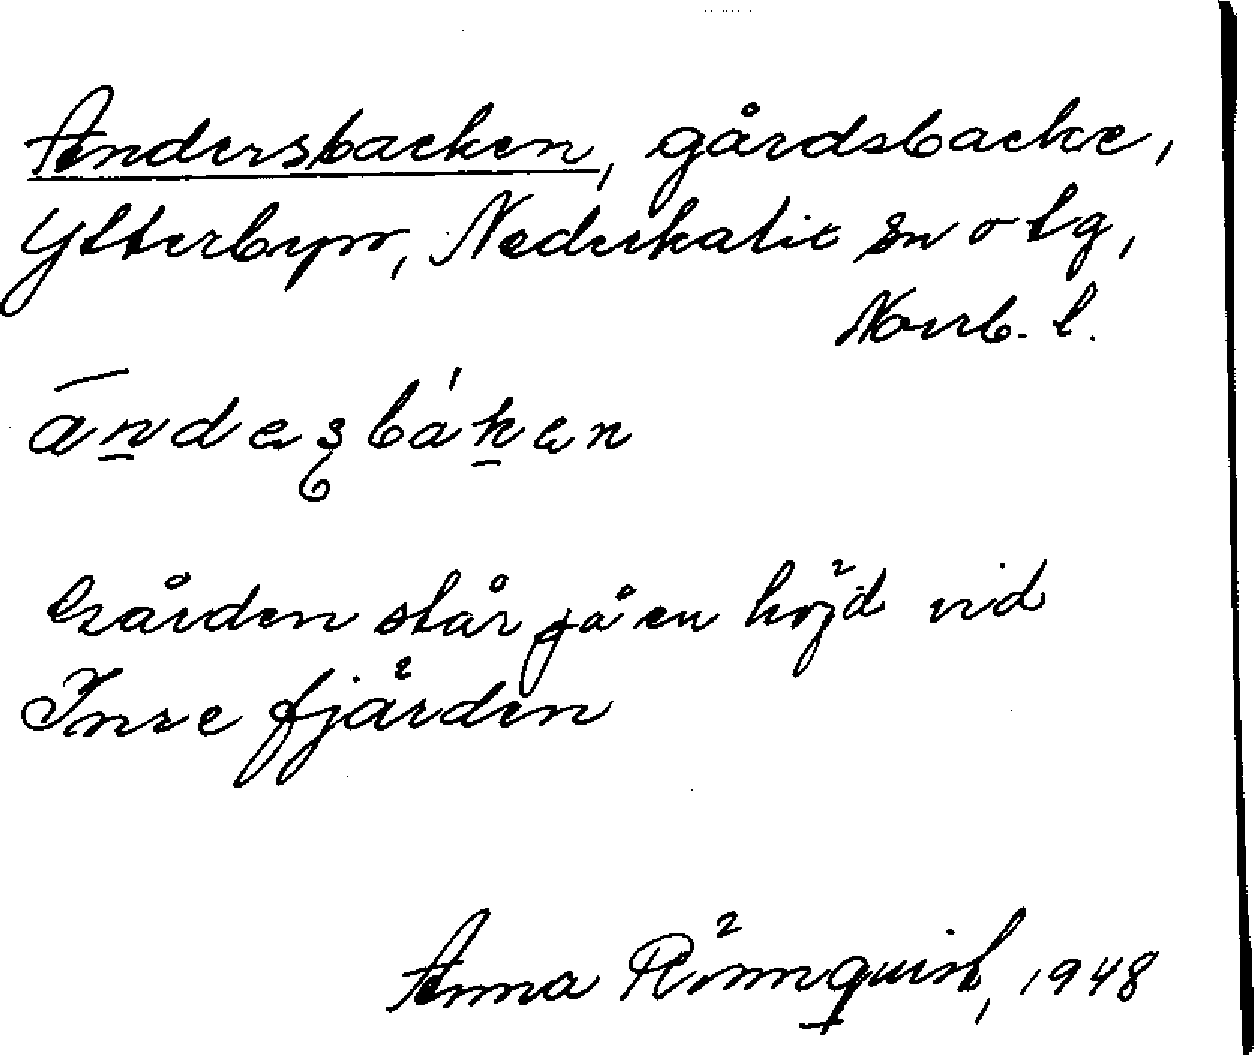 Andersbacken, gårdsbacke,
Ytterbyn, Nederkalix sn o tg,
Norrb. l.
ānde̢ʂbák̠en
Gården står på en höjd vid
Inre fjärden
Anna Rönnquist, 1948